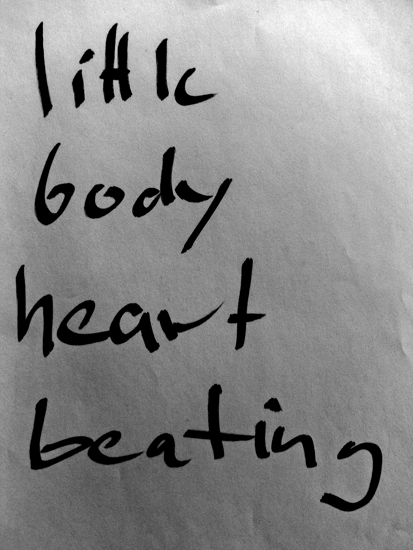 little
body
heart
beating